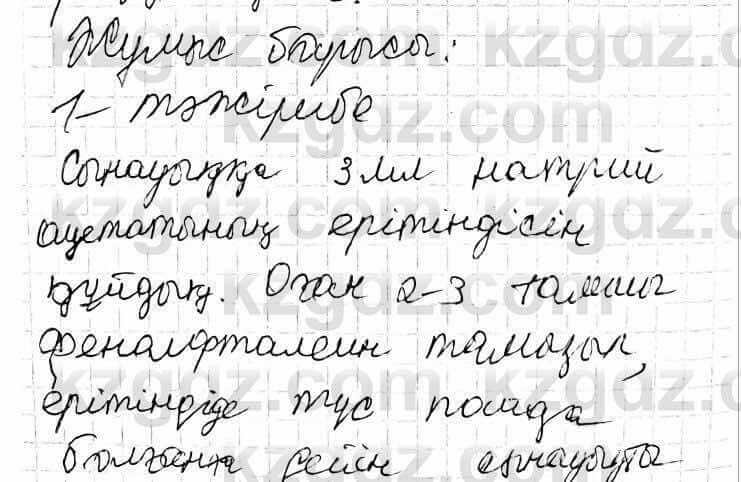 Жұмыс барысы:
1- тәжірибе
Сынауыққа 3 мл натрий
ацетатының ерітіндісін
құйдық. Оған 2-3 тамшы
фенолфталеин тамызып,
ерітіндіде түс пайда
болғанға дейін сынауықты